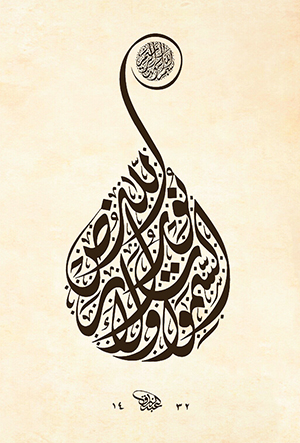 الله نور السموات والأرض
١٤ ٣٢